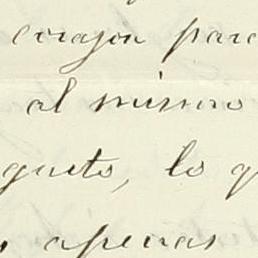 corazon para
al mismo
gusto, lo q
apenas